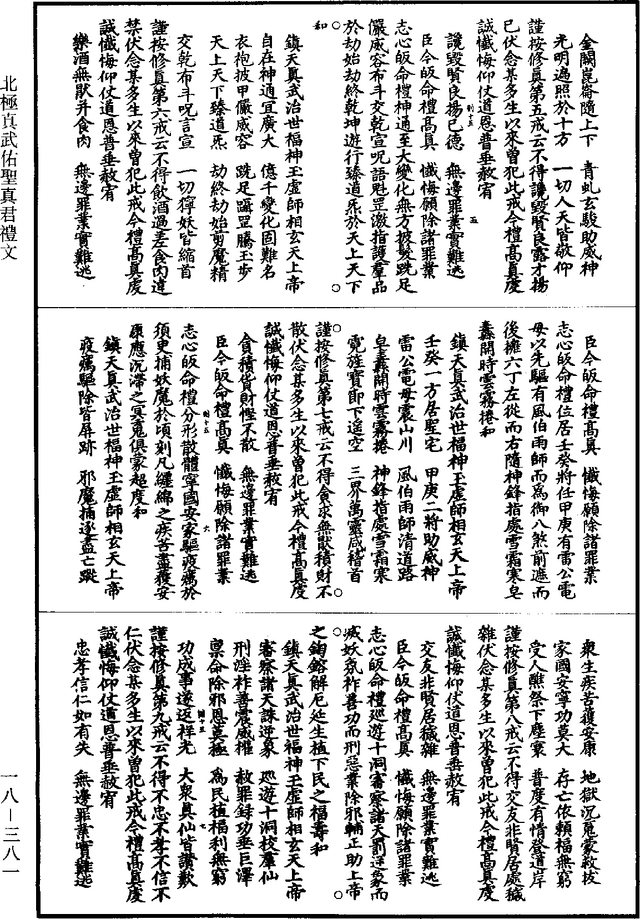 金闕崑崙隨上下　青虬玄駿助威神
光明遍照於十方　一切人天皆敬仰
謹按修真第五戒云不得謗毀賢良露才揚
己伏念某多生以來曾犯此戒今禮高真虔
誠懺悔仰仗道恩普垂赦宥
謗毀賢良揚己德　無邊罪業實難逃
臣今皈命禮高真　懺悔願除諸罪業
志心皈命禮神通至大變化無方披髮跣足
儼威容布斗交乾宣呪語魁罡激指護羣品
於劫始劫終乾坤遊行臻道炁於天上天下
和
鎮天真武治世福神玉虛師相玄天上帝
自在神通宜廣大　億千變化固難名
衣袍披甲儼威容　跣足躡罡騰玉步
天上天下臻道炁　劫終劫始剪魔精
交乾布斗呪言宣　一切獰妖皆縮首
謹按修真第六戒云不得飲酒過差食肉違
禁伏念某多生以來曾犯此戒今禮高真虔
誠懺悔仰仗道恩普垂赦宥
樂酒無猒并食肉　無邊罪業實難逃
臣今皈命禮高真　懺悔願除諸罪業
志心皈命禮位居壬癸將任甲庚有雷公電
母以先驅有風伯雨師而為御八煞前遮而
後擁六丁左從而右隨神鋒指處雪霜寒皂
纛開時雲霧捲和
鎮天真武治世福神玉虛師相玄天上帝
壬癸一方居聖宅　甲庚二將助威神
雷公電母震山川　風伯雨師清道路
皂纛開時雲霧捲　神鋒指處雪霜寒
霓旌寶節下遙空　三界萬靈咸稽首
謹按修真第七戒云不得貪求無猒積財不
散伏念某多生以來曾犯此戒今禮高真虔
誠懺悔仰仗道恩普垂赦宥
貪積貨財慳不散　無邊罪業實難逃
臣今皈命禮高真　懺悔願除諸罪業
志心皈命禮分形散體寧國安家驅疫癘於
須臾捕妖魔於頃刻凡纏綿之疾苦盡獲安
康應沉滯之冥冤俱蒙超度和
鎮天真武治世福神玉虛師相玄天上帝
疫癘驅除皆屏跡　邪魔捕逐盡亡蹤
衆生疾苦獲安康　地獄沉冤蒙救拔
家國安寧功莫大　存亡依賴福無窮
受人醮祭下塵寰　普度有情登道岸
謹按修真第八戒云不得交友非賢居處穢
雜伏念某多生以來曾犯此戒今禮高真虔
誠懺悔仰仗道恩普垂赦宥
交友非賢居穢雜　無邊罪業實難逃
臣今皈命禮高真　懺悔願除諸罪業
志心皈命禮巡遊十洞審察諸天罰逆象而
滅妖氛祚善功而刑惡業除邪輔正助上帝
之鈞鎔解厄延生植下民之福壽和
鎮天真武治世福神玉虛師相玄天上帝
審察諸天誅逆象　巡遊十洞校羣仙
刑淫祚善震威權　赦罪錄功垂巨澤
稟命除邪恩莫極　為民植福利無窮
功成事遂返祥光　大衆真仙皆讚歎
謹按修真第九戒云不得不忠不孝不信不
仁伏念某多生以來曾犯此戒今禮高真虔
誠懺悔仰仗道恩普垂赦宥
忠孝信仁如有失　無邊罪業實難逃
北極真武佑聖真君禮文
一八—三八一